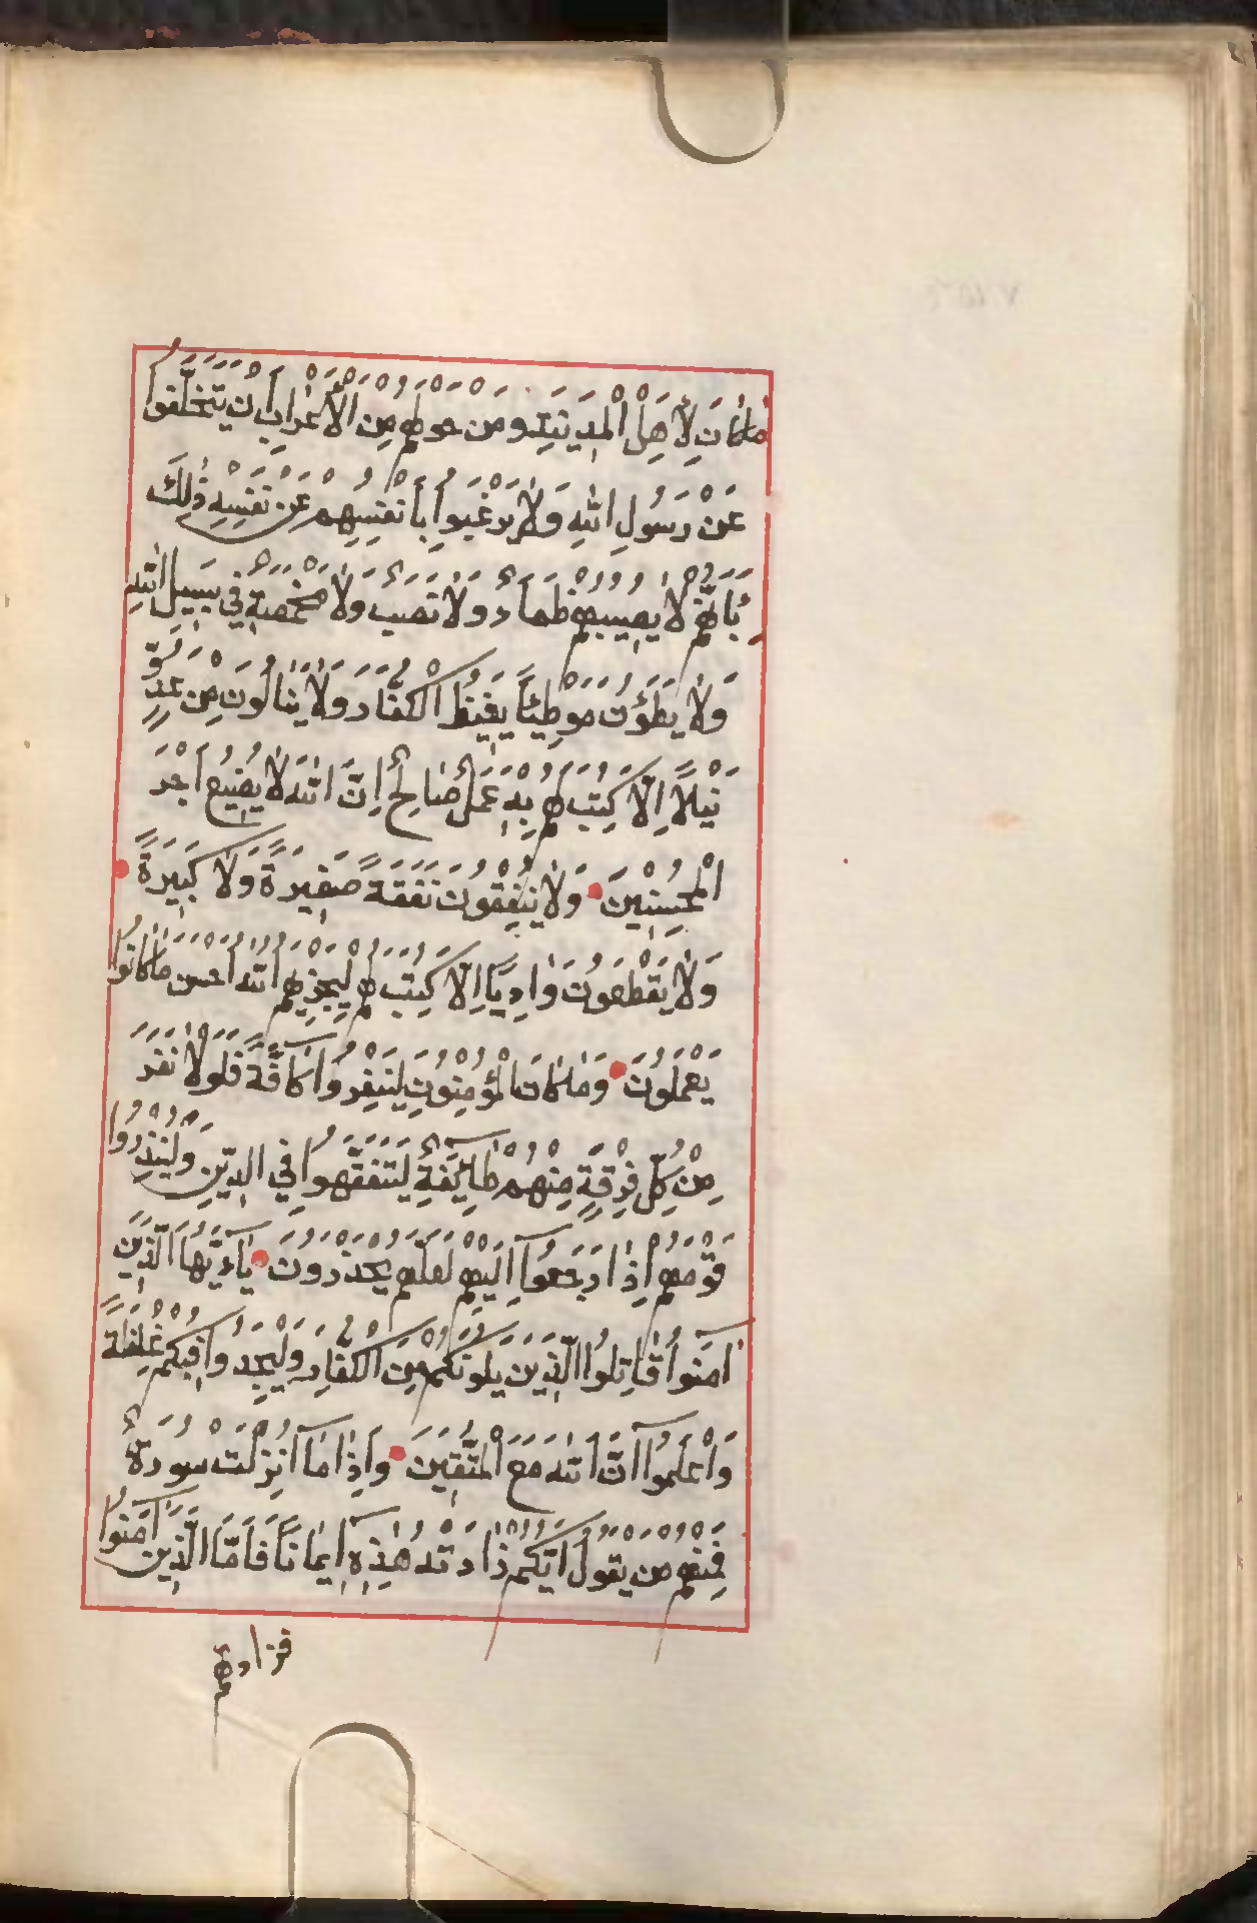 مَا كَانَ لِأَهْلِ الْمَدِينَةِ وَمَنْ حَوْلَهُمْ مِنَ الْأَعْرَابِ أَنْ يَتَخَلَّفُوا
عَنْ رَسُولِ اللّٰهِ وَلَا يَرْغَبُوا بِأَنْفُسِهِمْ عَنْ نَفْسِهِ ذٰلِكَ
بِأَنَّهُمْ لَا يُصِيبُهُمْ ظَمَأٌ وَلَا نَصَبٌ وَلَا مَخْمَصَةٌ فِي سَبِيلِ اللّٰهِ
وَلَا يَطَؤُنَ مَوْطِئًا يَغِيظُ الْكُفَّارَ وَلَا يَنَالُونَ مِنْ عَدُوٍّ
نَيْلًا إِلَّا كُتِبَ لَهُمْ بِهِ عَمَلٌ صَالِحٌ إِنَّ اللّٰهَ لَا يُضِيعُ أَجْرَ
الْمُحْسِنِينَ وَلَا يُنْفِقُونَ نَفَقَةً صَغِيرَةً وَلَا كَبِيرَةً
وَلَا يَقْطَعُونَ وَادِيًا إِلَّا كُتِبَ لَهُمْ لِيَجْزِيَهُمُ اللّٰهُ أَحْسَنَ مَا كَانُوا
يَعْمَلُونَ وَمَا كَانَ الْمُؤْمِنُونَ لِيَنْفِرُوا كَافَّةً فَلَوْلَا نَفَرَ
مِنْ كُلِّ فِرْقَةٍ مِنْهُمْ طَائِفَةٌ لِيَتَفَقَّهُوا فِي الدِّينِ وَلِيُنْذِرُوا
قَوْمَهُمْ إِذَا رَجَعُوا إِلَيْهِمْ لَعَلَّهُمْ يَحْذَرُونَ يَاأَيُّهَا الَّذِينَ
آمَنُوا قَاتِلُوا الَّذِينَ يَلُونَكُمْ مِنَ الْكُفَّارِ وَلْيَجِدُوا فِيكُمْ غِلْظَةً
وَاعْلَمُوا أَنَّ اللّٰهَ مَعَ الْمُتَّقِينَ وَإِذَا مَا أُنْزِلَتْ سُورَةٌ
فَمِنْهُمْ مَنْ يَقُولُ أَيُّكُمْ زَادَتْهُ هٰذِهِ إِيمَانًا فَأَمَّا الَّذِينَ آمَنُوا
فزادتهم